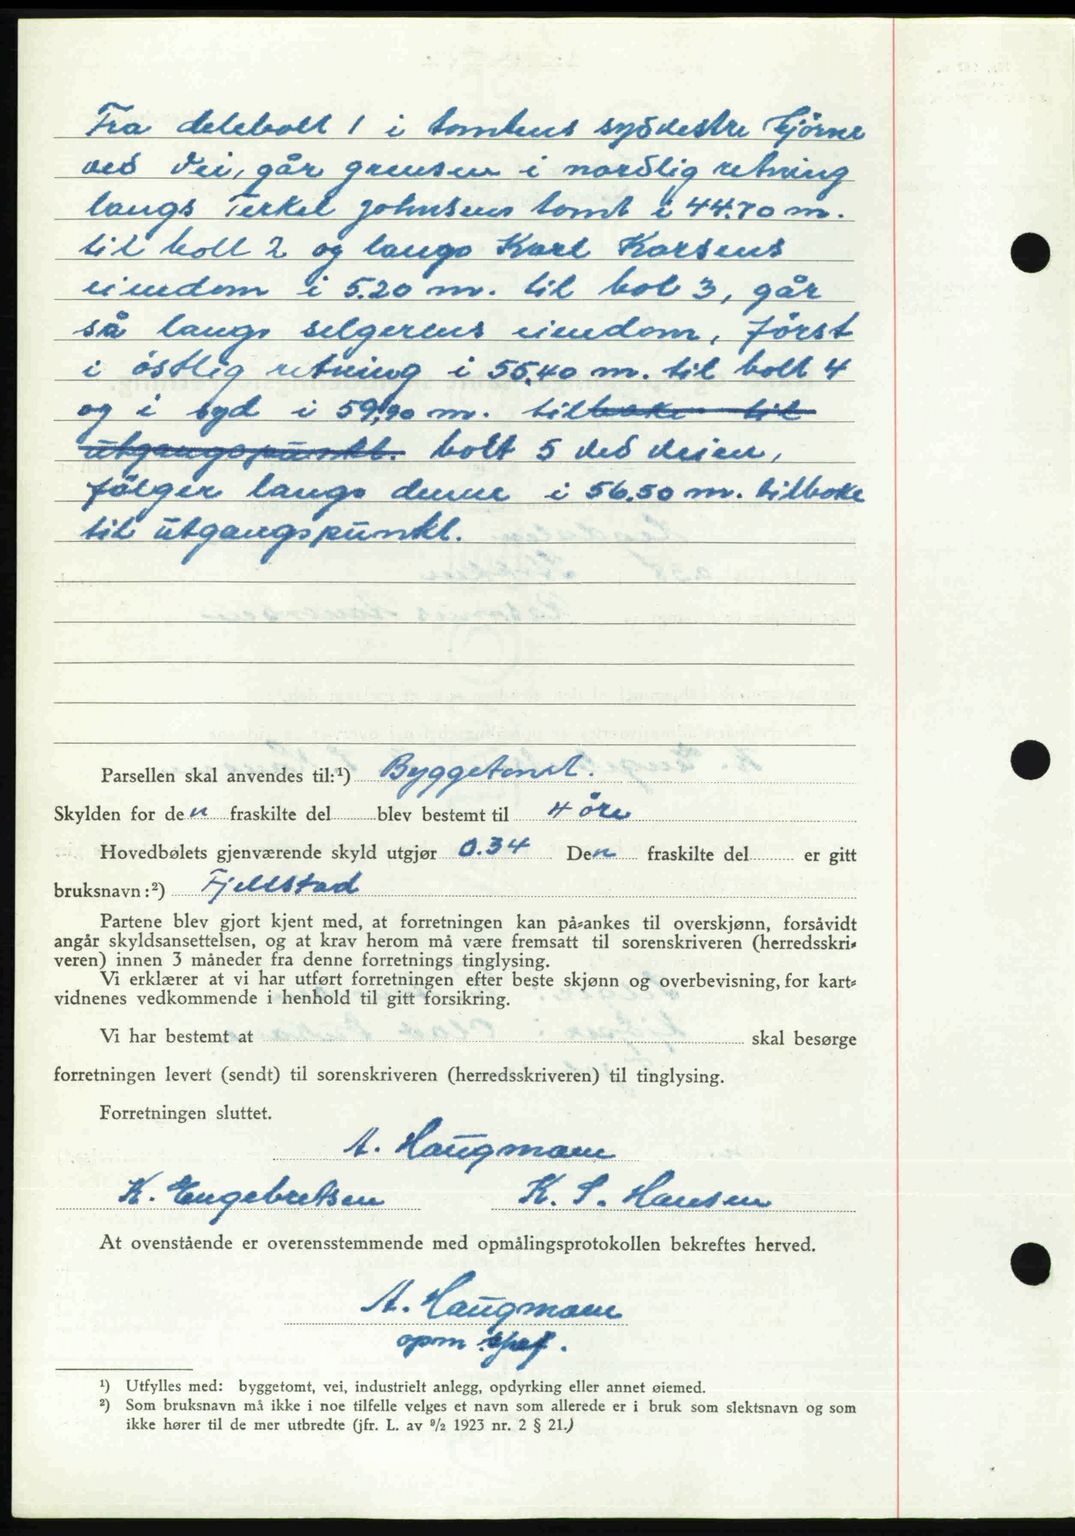 Fra delebolt 1 i tomtens sydvestre hjörne
ved vei, går grensen i nordlig retning
langs Terkel Johnsens tomt i 44.70 m.
til bolt 2 og langs Karl Karsens
eiendom i 5.20 m. til bol 3, går
så langs selgerens eiendom, först
i östlig retning i 55.40 m. til bolt 4
og i syd i 59,90 m. tilbake til
utgangspunkt. bolt 5 ved veien,
fölger langs denne i 56.50 m. tilbake
til utgangspunkt.
Parsellen skal anvendes til:¹) Byggetomt.
Skylden for den fraskilte del blev bestemt til 4 öre
Hovedbølets gjenværende skyld utgjør 0.34 Den fraskilte del er gitt
bruksnavn:²) Fjellstad
Partene blev gjort kjent med, at forretningen kan på-ankes til overskjønn, forsåvidt
angår skyldsansettelsen, og at krav herom må være fremsatt til sorenskriveren (herredsskri-
veren) innen 3 måneder fra denne forretnings tinglysing.
Vi erklærer at vi har utført forretningen efter beste skjønn og overbevisning, for kart-
vidnenes vedkommende i henhold til gitt forsikring.
Vi har bestemt at skal besørge
forretningen levert (sendt) til sorenskriveren (herredsskriveren) til tinglysing.
Forretningen sluttet.
A. Haugmann
K. Engebretsen K. S. Hansen
At ovenstående er overensstemmende med opmålingsprotokollen bekreftes herved.
A. Haugmann
opm
¹) Utfylles med: byggetomt, vei, industrielt anlegg, opdyrking eller annet øiemed.
²) Som bruksnavn må ikke i noe tilfelle velges et navn som allerede er i bruk som slektsnavn og som
ikke hører til de mer utbredte (jfr. L. av ⁹/₂ 1923 nr. 2 § 21.)